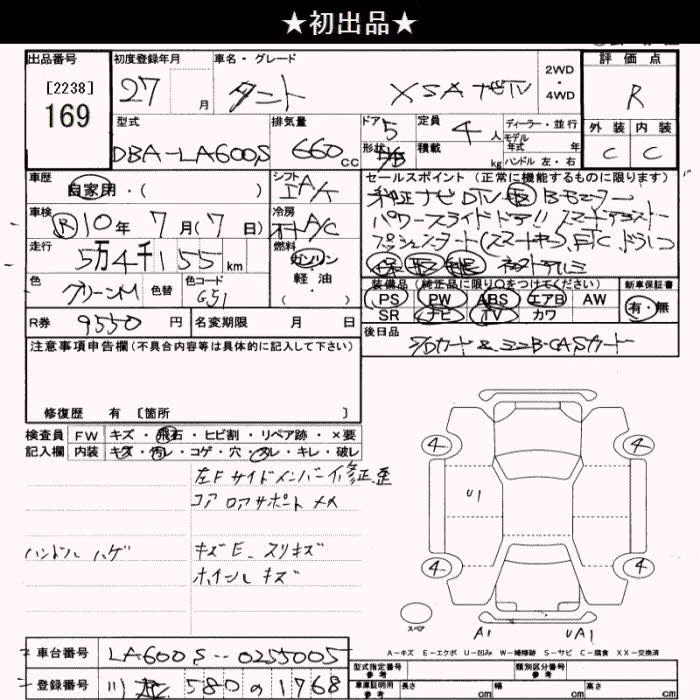 ★初出品★
出品番号
[2238]
169
初度登録年月
27 月
車名・グレード
タント XSA ナビTV
2WD
・
4WD
評価点
R
外装 内装
C C
型式
DBA-LA600S
排気量
660 cc
ドア 5
形状
定員 4 人
積載 kg
ディーラー・並行
モデル
年式 年
ハンドル 左・右
車歴
自家用・( )
シフト
車検
R10年 7月(7日)
冷房
A/C
走行
5万4千155 km
燃料
ガソリン
軽油
( )
色
グリーンM
色替
色コード
G51
R券 9550 円
名変期限 月 日
セールスポイント(正常に機能するものに限ります)
純正ナビDTV Bモニター
パワースライドドア!!
プッシュスタート(スマートキー) ETC ドラレコ
装備品(純正品に限り○をつけてください)
PS PW ABS エアB AW
SR ナビ TV カワ
新車保証書
有・無
後日品
SDカード & ミニB-CASカード
注意事項申告欄(不具合内容等は具体的に記入して下さい)
修復歴 有 [箇所 ]
検査員
記入欄
FW キズ・飛石・ヒビ割・リペア跡・×要
内装 キズ・汚レ・コゲ・穴・スレ・キレ・破レ
左FサイドメンバーイM修正歪
コアロアサポート メメ
ハンドル ハゲ
キズE スリキズ
ホイールキズ
4 4
U1
4 4
スペア
A1 UA1
A-キズ E-エクボ U-凹み W-補修跡 S-サビ C-腐食 XX-交換済
車台番号 LA600S-0255005
登録番号 580 の 1768
型式指定番号
参考
類別区分番号
参考
車庫証明用
参考
長さ cm 幅 cm 高さ cm